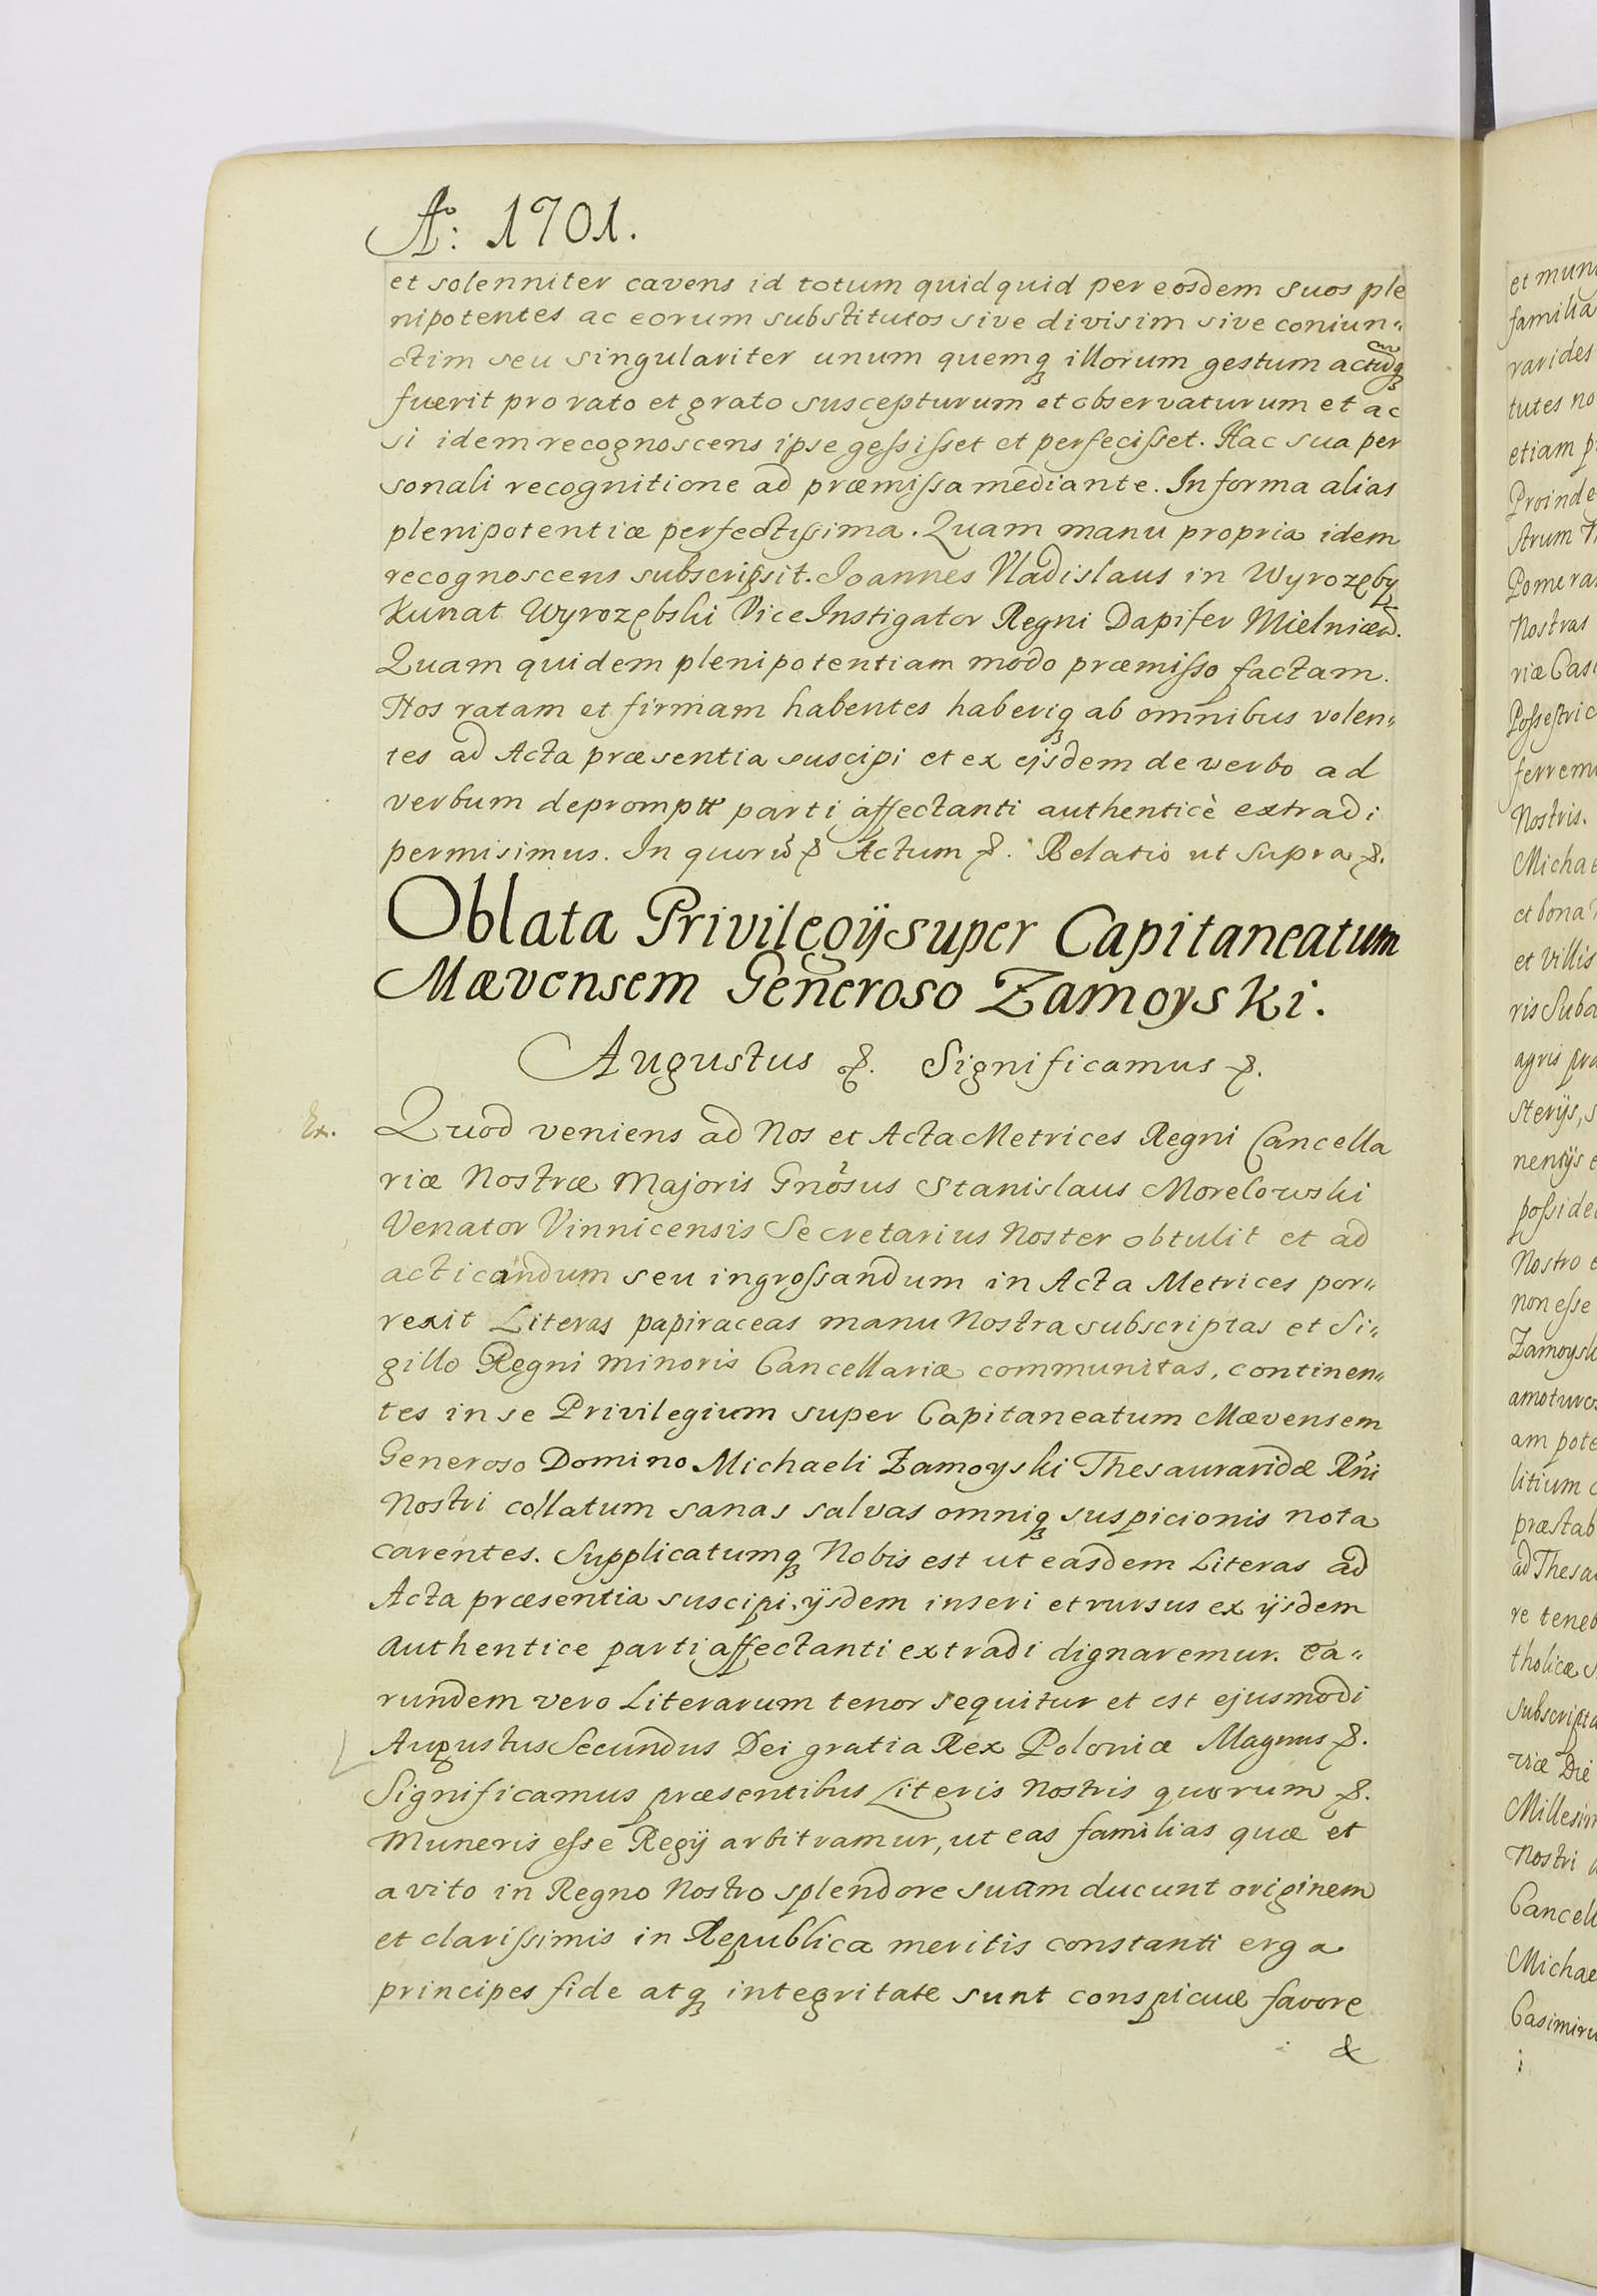 Aº: 1701.
et solenniter cavens id totum quidquid per eosdem suos ple
nipotentes ac eorum substitutos sive divisim sive coniun„
ctim seu singulariter unum quemq illorum gestum actuq
fuerit pro rato et grato suscepturum et observaturum et ac
si idem recognoscens ipse geſsiſset et perfeciſset. Hac sua per
sonali recognitione ad præmiſsa mediante. In forma alias
plenipotentiæ perfectiſsima. Quam manu propria idem
recognoscens subscripsit. Joannes Vladislaus in Wyrozęby
Kunat Wyrozębski Vice Instigator Regni Dapifer Mielnicen.
Quam quidem plenipotentiam modo præmiſso factam.
Nos ratam et firmam habentes haberiq ab omnibus volen„
tes ad Acta præsentia suscipi et ex ejsdem de verbo ad
verbum deprompt parti affectanti authenticè extradi
permisimus. In quorũ & Actum &. Relatio ut supra &.
Oblata Privilegÿ super Capitaneatum
Mævensem Generoso Zamoyski.
Augustus &. Significamus &.
Ex.
Quod veniens ad Nos et Acta Metrices Regni Cancella
riæ Nostræ Majoris Gnõsus Stanislaus Morelowski
Venator Vinnicensis Secretarius Noster obtulit et ad
acticandum seu ingroſsandum in Acta Metrices por„
rexit Literas papiraceas manu Nostra subscriptas et Si„
gillo Regni minoris Cancellariæ communitas, continen„
tes in se Privilegium super Capitaneatum Mævensem
Generoso Domino Michaeli Zamoyski Thesauraridæ Rñi
Nostri collatum sanas salvas omniq suspicionis nota
carentes. Supplicatumq Nobis est ut easdem Literas ad
Acta præsentia suscipi, ÿsdem inseri et rursus ex ÿsdem
authentice parti affectanti extradi dignaremur. Ea„
rundem vero Literarum tenor sequitur et est ejusmodi
Augustus Secundus Dei gratia Rex Poloniæ Magnus &.
Significamus præsentibus Literis Nostris quorum &.
Muneris eſse Regÿ arbitramur, ut eas familias quæ et
avito in Regno Nostro splendore suam ducunt originem
et clariſsimis in Republica meritis constanti erga
principes fide atq integritate sunt conspicuæ favore
&
et mun
familia
rarides
tutes no
etiam p
Proinde
strum
Pomera
Nostras
riæ Casi
Poſseſtric
ferrem
Nostris.
Michae
et bona
et villis
ris Suba
agris pra
sterÿs, s
nensÿs e
poſside
Nostro e
non eſse
Zamoysk
amoturos
am pote
litium
præstab
ad Thesa
re teneb
tholicæ
subscripta
riæ Die
Millesim
Nostri
Cancell
Michae
Casimiru